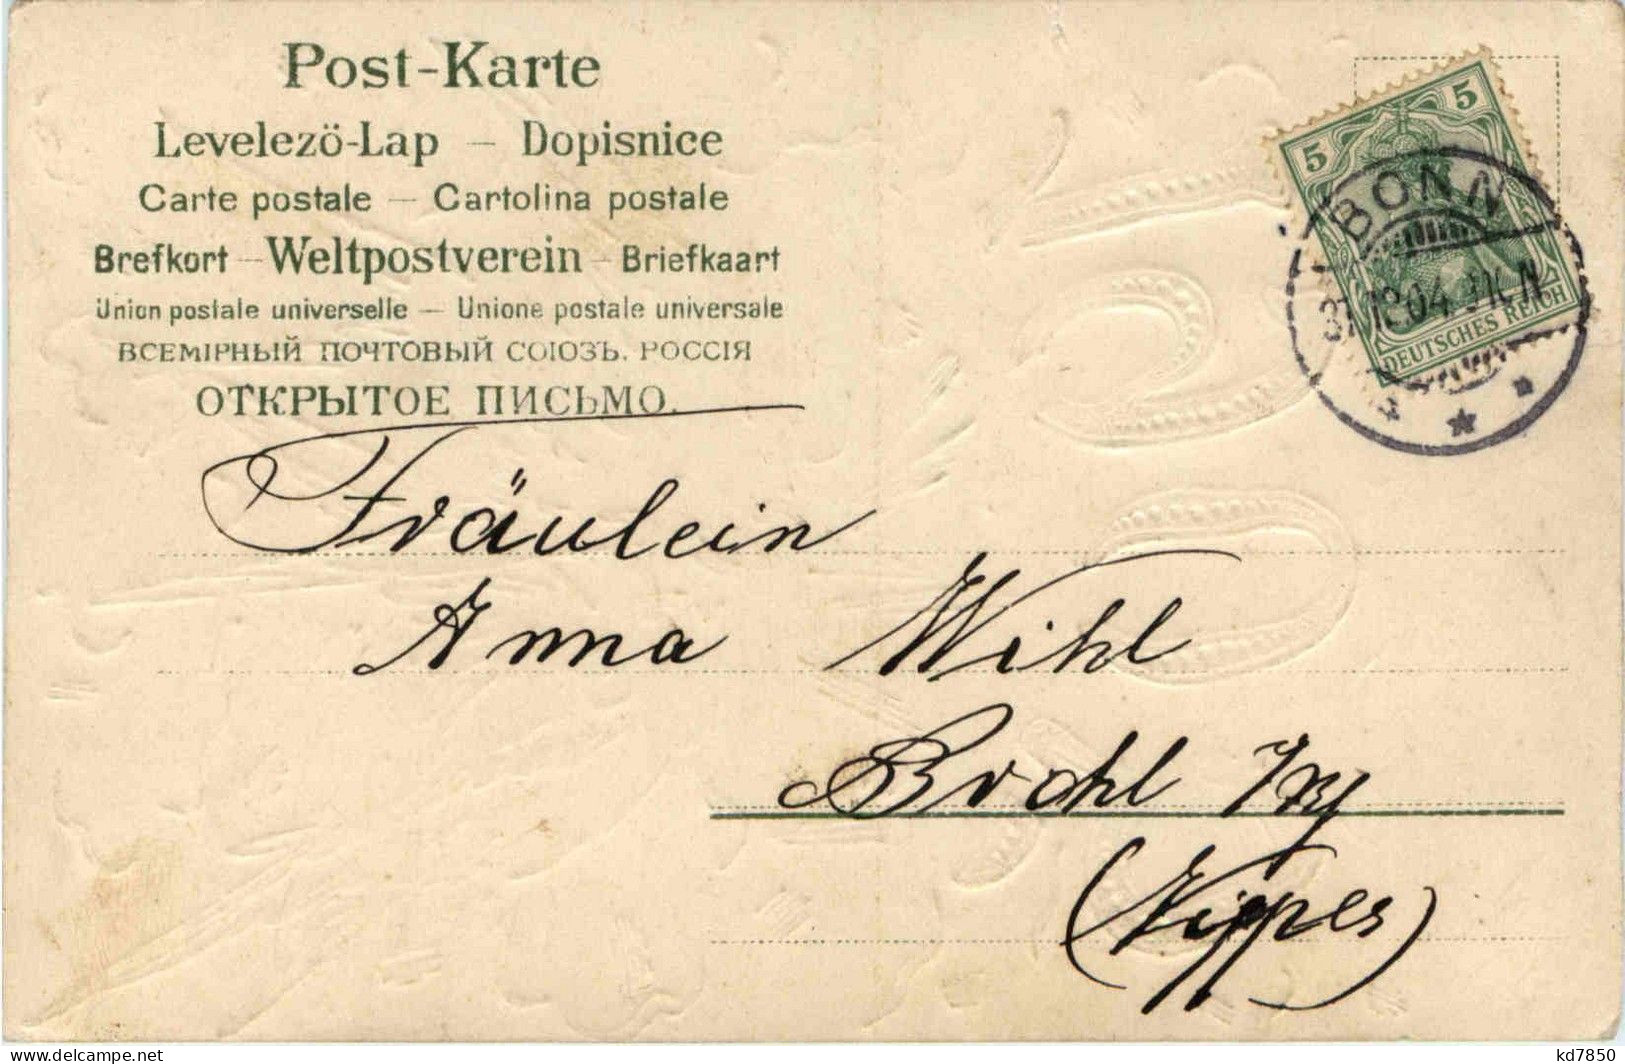 Post-Karte
Levelezö-Lap – Dopisnice
Carte postale – Cartolina postale
Brefkort – Weltpostverein – Briefkaart
Union postale universelle – Unione postale universale
ВСЕМІРНЫЙ ПОЧТОВЫЙ СОЮЗЪ. РОССІЯ
ОТКРЫТОЕ ПИСЬМО.
5 5
DEUTSCHES REICH
BONN
31.12.04
Fräulein
Anna Wihl
Brohl
(Nippes)
delcampe.net
kd7850